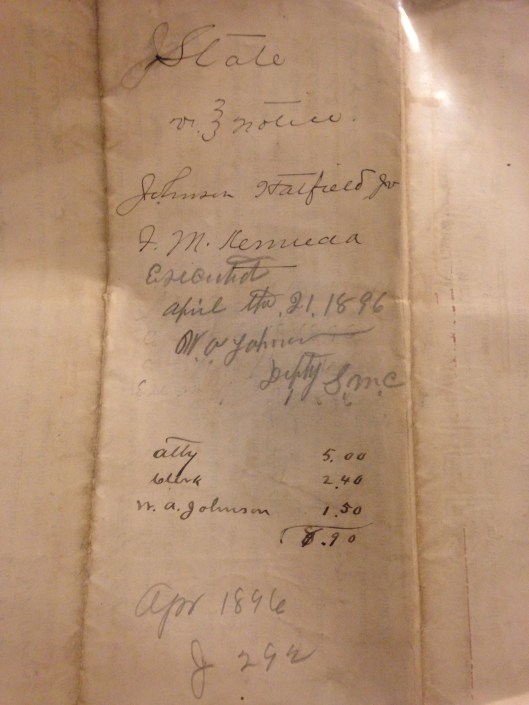 State
vs. } notice.
Johnson Hatfield Jr
J. M.
Executed
April the, 21, 1896
W. A. Johnson
Depty S. M. C
atty 5.00
Clerk 2.40
W. A. Johnson 1.50
8.90
Apr 1896
J 292